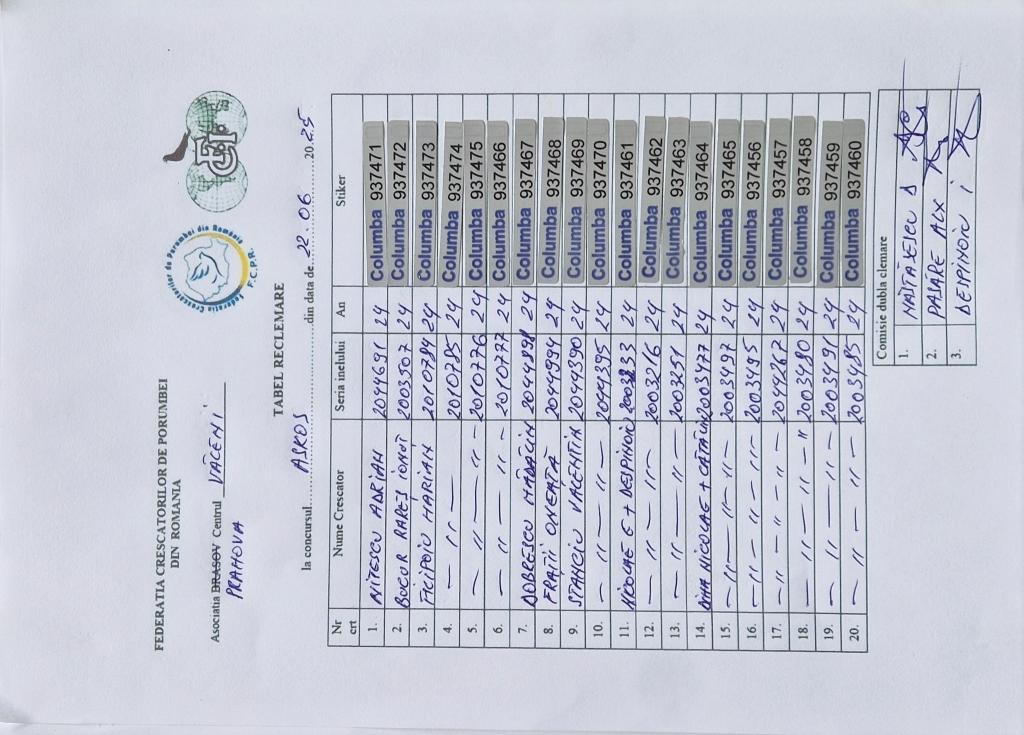 FEDERATIA CRESCATORILOR DE PORUMBEI
DIN ROMANIA
Asociatia BRASOV Centrul VĂCENI
PRAHOVA
Federatia Crescatorilor de Porumbei din România
F.C.P.R.
TABEL RECLEMARE
la concursul ASKOS din data de 22.06 2025
Nr crt Nume Crescator Seria inelului An Stiker
1. NITESCU ADRIAN 2044691 24 Columba 937471
2. BUCUR RAREȘ IONUȚ 2003507 24 Columba 937472
3. FICIPOIU MARIAN 2010784 24 Columba 937473
4. — 〃 — 2010785 24 Columba 937474
5. — 〃 — 〃 — 2010776 24 Columba 937475
6. — 〃 — 〃 — 2010777 24 Columba 937466
7. DOBRESCU MĂDĂLIN 2044898 24 Columba 937467
8. FRAȚII ONEAȚĂ 2044994 24 Columba 937468
9. STANCIU VALENTIN 2044390 24 Columba 937469
10. — 〃 — 〃 — 2044395 24 Columba 937470
11. NICOLAE G + DESPINOIU 24 Columba 937461
12. — 〃 — 〃 — 2003216 24 Columba 937462
13. — 〃 — 〃 — 2003251 24 Columba 937463
14. DIMA NICOLAE + CĂTĂLIN 2003477 24 Columba 937464
15. — 〃 — 〃 — 〃 — 2003497 24 Columba 937465
16. — 〃 — 〃 — 〃 — 2003495 24 Columba 937456
17. — 〃 — 〃 — 〃 — 2044267 24 Columba 937457
18. — 〃 — 〃 — 〃 2003480 24 Columba 937458
19. — 〃 — 〃 — 2003491 24 Columba 937459
20. — 〃 — 〃 — 2003485 24 Columba 937460
Comisie dubla clemare
1.
2. PASARE ALX
3. DESPINOIU I